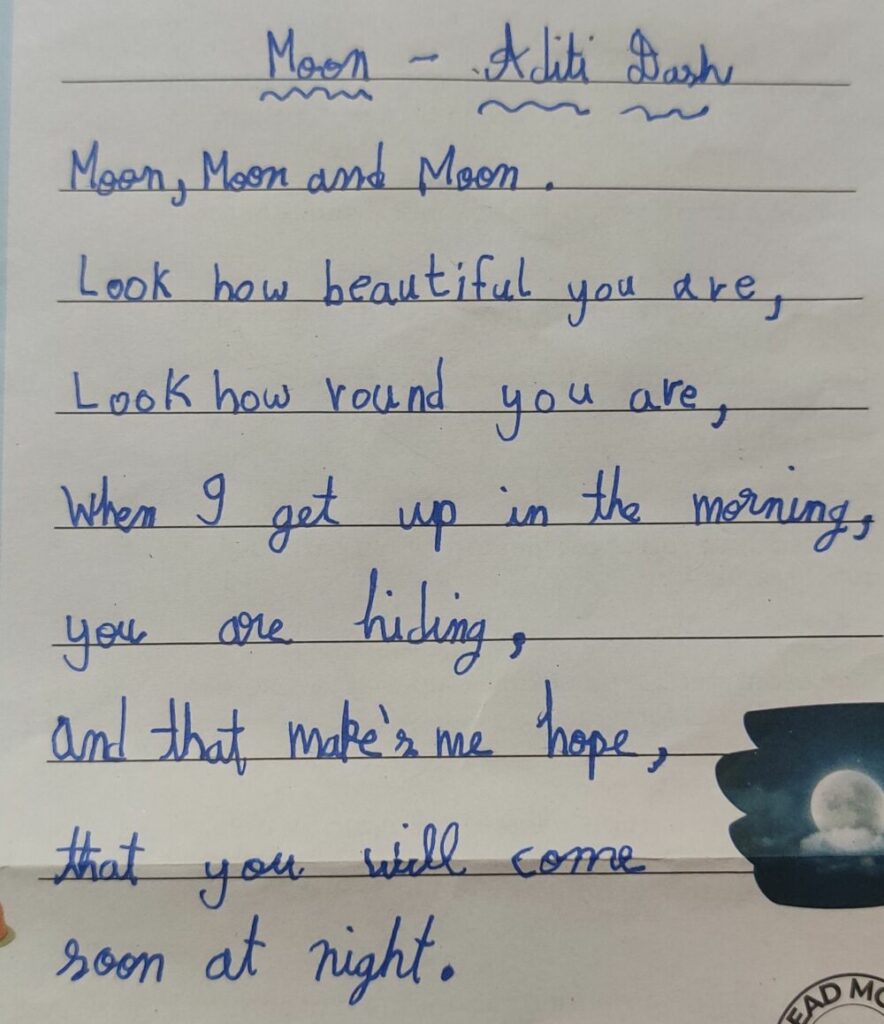 Moon - Aditi Dash
Moon, Moon and Moon.
Look how beautiful you are,
Look how round you are,
When I get up in the morning,
you are hiding,
and that make's me hope,
that you will come
soon at night.